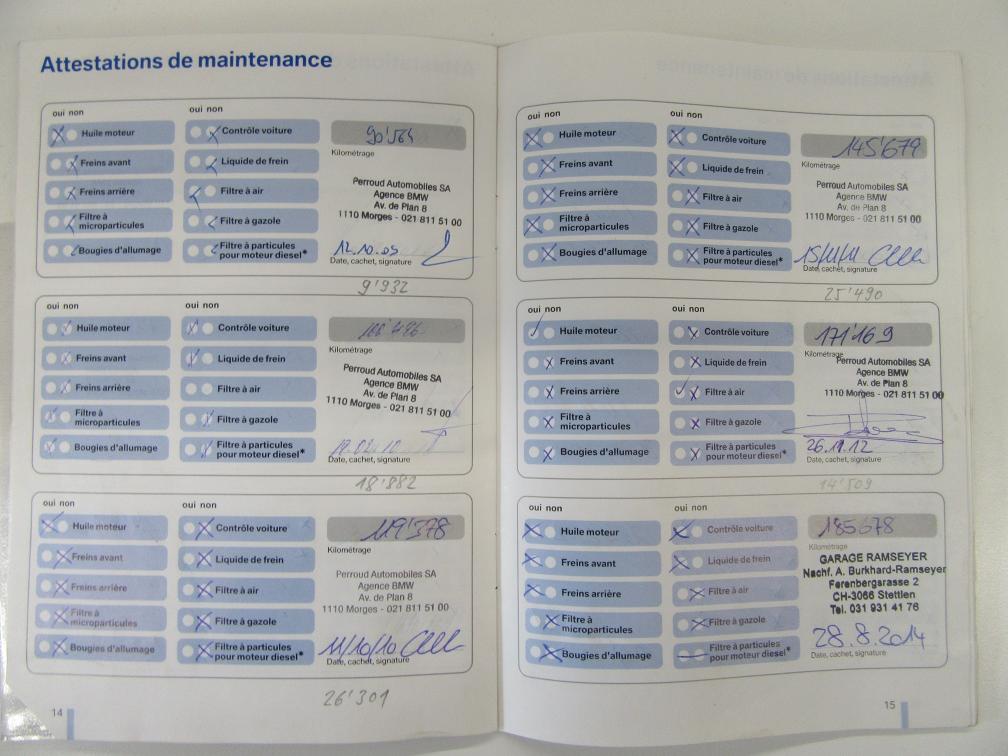 Attestations de maintenance
oui non
oui non
Huile moteur
Contrôle voiture
90'564
Kilométrage
Freins avant
Liquide de frein
Freins arrière
Filtre à air
Perroud Automobiles SA
Agence BMW
Av. de Plan 8
1110 Morges - 021 811 51 00
Filtre à
microparticules
Filtre à gazole
Bougies d'allumage
Filtre à particules
pour moteur diesel*
12.10.09
Date, cachet, signature
9'932
oui non
oui non
Huile moteur
Contrôle voiture
Kilométrage
Freins avant
Liquide de frein
Freins arrière
Filtre à air
Perroud Automobiles SA
Agence BMW
Av. de Plan 8
1110 Morges - 021 811 51 00
Filtre à
microparticules
Filtre à gazole
Bougies d'allumage
Filtre à particules
pour moteur diesel*
Date, cachet, signature
18'882
oui non
oui non
Huile moteur
Contrôle voiture
119'378
Kilométrage
Freins avant
Liquide de frein
Freins arrière
Filtre à air
Perroud Automobiles SA
Agence BMW
Av. de Plan 8
1110 Morges - 021 811 51 00
Filtre à
microparticules
Filtre à gazole
Bougies d'allumage
Filtre à particules
pour moteur diesel*
11/10/10
Date, cachet, signature
26'301
14
oui non
oui non
Huile moteur
Contrôle voiture
145'679
Kilométrage
Freins avant
Liquide de frein
Freins arrière
Filtre à air
Perroud Automobiles SA
Agence BMW
Av. de Plan 8
1110 Morges - 021 811 51 00
Filtre à
microparticules
Filtre à gazole
Bougies d'allumage
Filtre à particules
pour moteur diesel*
15/11/11
Date, cachet, signature
25'490
oui non
oui non
Huile moteur
Contrôle voiture
171'169
Kilométrage
Freins avant
Liquide de frein
Freins arrière
Filtre à air
Perroud Automobiles SA
Agence BMW
Av. de Plan 8
1110 Morges - 021 811 51 00
Filtre à
microparticules
Filtre à gazole
Bougies d'allumage
Filtre à particules
pour moteur diesel*
26.11.12
Date, cachet, signature
14'509
oui non
oui non
Huile moteur
Contrôle voiture
185678
Kilométrage
Freins avant
Liquide de frein
Freins arrière
Filtre à air
GARAGE RAMSEYER
Nachf. A. Burkhard-Ramseyer
Ferenbergasrasse 2
CH-3066 Stettlen
Tel. 031 931 41 76
Filtre à
microparticules
Filtre à gazole
Bougies d'allumage
Filtre à particules
pour moteur diesel*
28.8.2014
Date, cachet, signature
15